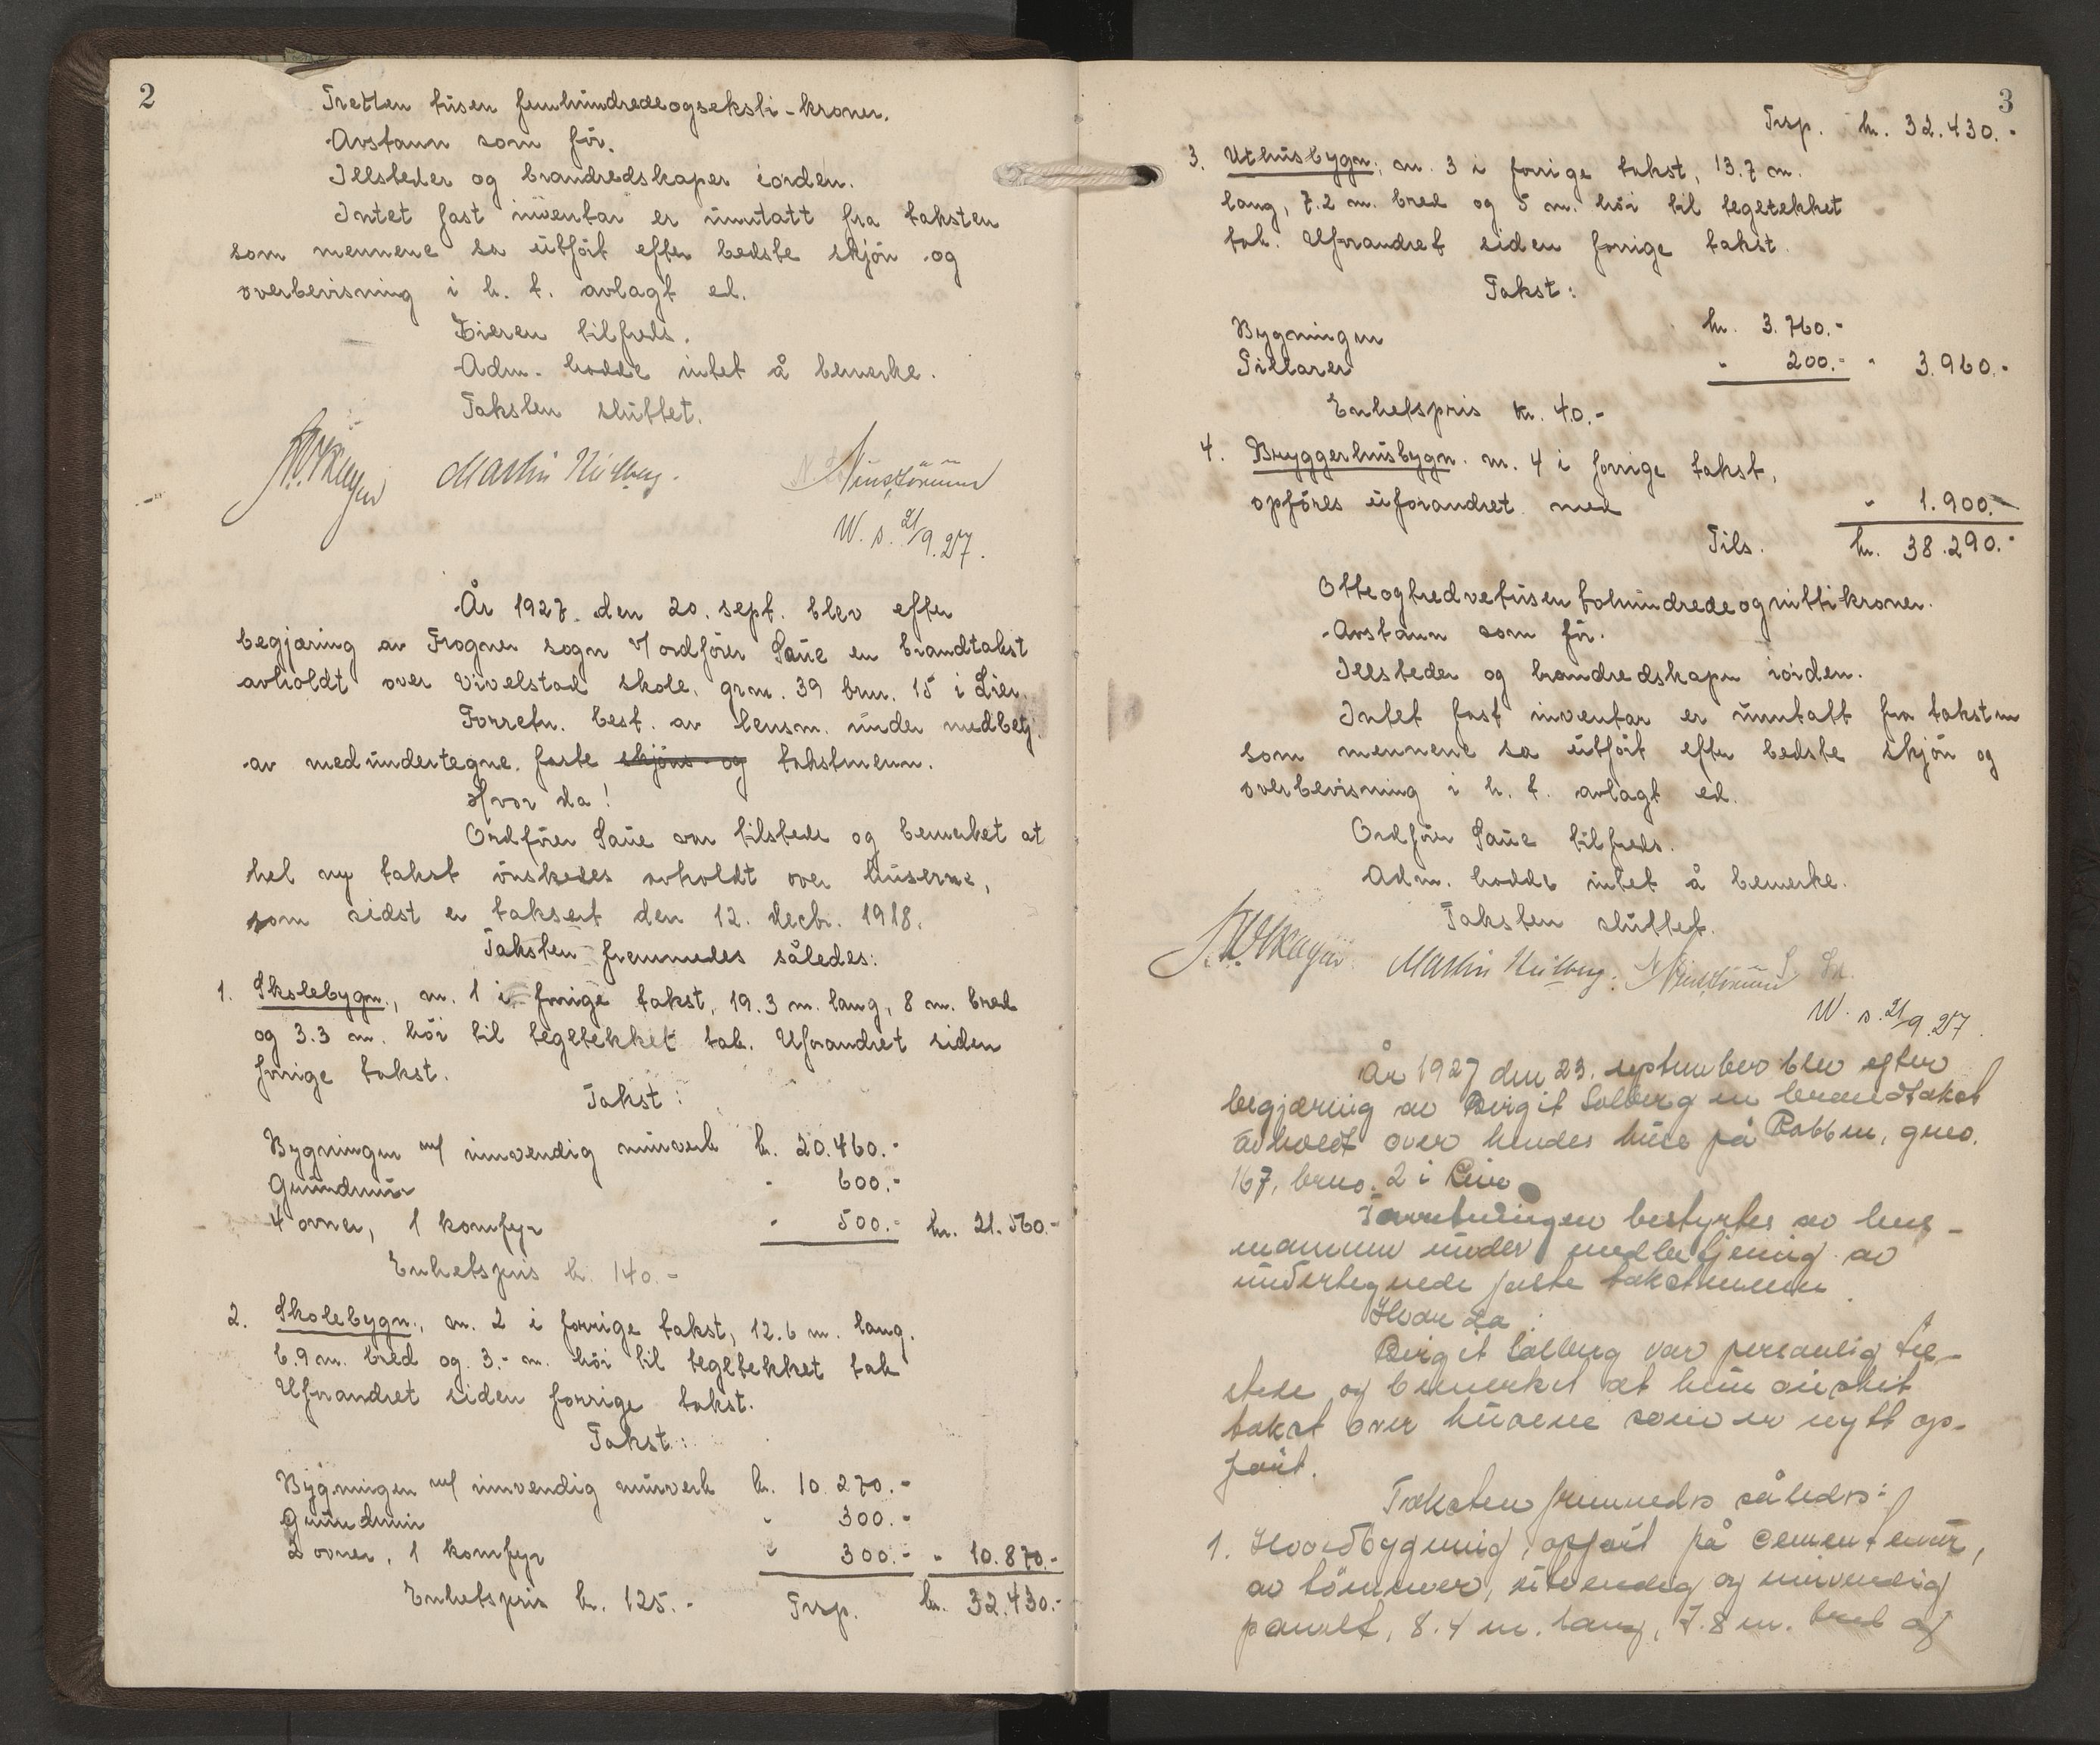 2
Tretten tusen femhundredeogseksti-kroner.
Avstann som før.
Illsteder og brandredskaper iorden.
Intet fast inventar er unntatt fra taksten
som mennene sa utført efter bedste skjøn og
overbevisning i h. t. avlagt ed.
Eieren tilfreds.
Adm. hadde intet å bemerke.
Taksten sluttet.
Martin
W. s. 21/9.27.
År 1927 den 20. sept. blev efter
begjæring av Frogner sogn v/ ordfører Saue en brandtakst
avholdt over Vivelstad skole, grnr. 39 brnr. 15 i Lier.
Forretn. best. av lensm. under medbetj.
av medundertegne. faste skjøns- og takstmenn.
Hvor da!
Ordfører Saue var tilstede og bemerket at
hel ny takst ønskedes avholdt over huserne,
som sidst er taksert den 12. decbr. 1918.
Taksten fremmedes således:
1. Skolebygn., nr. 1 i forrige takst, 19.3 m. lang, 8 m. bred
og 3.3 m. høi til teglтekket tak. Uforandret siden
forrige takst.
Takst:
Bygningen m/ innvendig murverk kr. 20.460.-
Grundmur " 600.-
4 ovner, 1 komfyr " 500.- kr. 21.560.-
Enhetspris kr. 140.-
2. Skolebygn., nr. 2 i forrige takst, 12.6 m. lang.
6.9 m. bred og 3.- m. høi til tegltekket tak
Uforandret siden forrige takst.
Takst:
Bygningen m/ innvendig murverk kr. 10.270.-
Grundmur " 300.-
2 ovner, 1 komfyr " 300.- " 10.870.-
Enhetspris kr. 125.- Trsp. kr. 32.430.-
3
Trsp. kr. 32.430.-
3. Uthusbygn., nr. 3 i forrige takst, 13.7 m.
lang, 7.2 m. bred og 5 m. høi til tegltekket
tak. Uforandret siden forrige takst.
Takst:
Bygningen kr. 3.760.-
Pillarer " 200.- " 3.960.-
Enhetspris kr. 40.-
4. Bryggerhusbygn. nr. 4 i forrige takst,
opføres uforandret med " 1.900.-
Tils. kr. 38.290.-
Otteogtredvetusentohundredeognittikroner.
Avstann som før.
Illsteder og brandredskaper iorden.
Intet fast inventar er unntatt fra taksten
som mennene sa utført efter bedste skjøn og
overbevisning i h. t. avlagt ed.
Ordfører Saue tilfreds.
Adm. hadde intet å bemerke.
Taksten sluttet.
Martin
W. s. 21/9.27.
År 1927 den 23. september blev efter
begjæring av Birgit Solberg en brandtakst
avholdt over hendes huse på Robben, gno.
167, bruo. 2 i Lier
Forretningen bestyrtes av lens-
mannen under medbetjening av
undertegnede faste takstmenn.
Hvor da:
Birgit Solberg var personlig til-
stede og bemerket at hun ønsket
takst over husene som er nytt op-
ført.
Taksten fremmedes således:
1. Hovedbygning, opført på cementmur,
av tømmer, utvendig og innvendig
panelt, 8.4 m. lang, 7.8 m. bred og